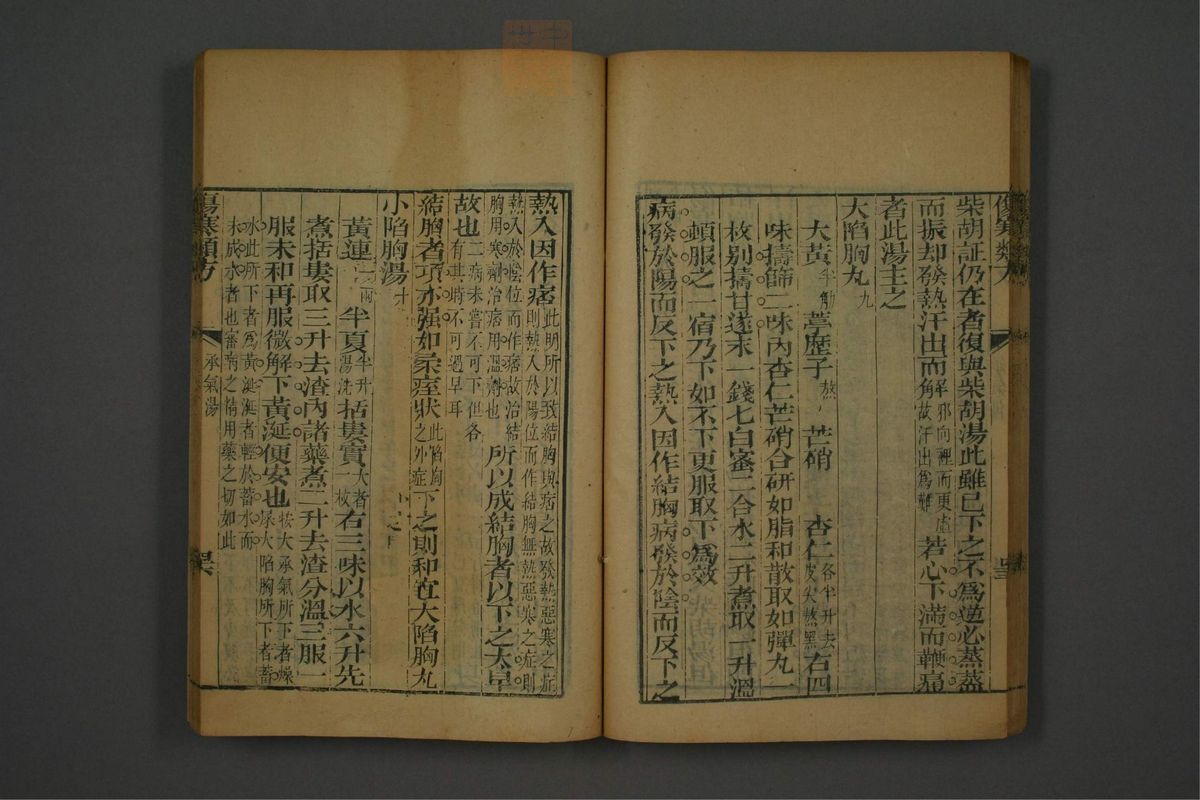 柴胡証仍在者復與柴胡湯此雖已下之不爲逆必蒸蒸
而振却發熱汗出而解邪向裡而更虛
角故汗出爲難若心下滿而鞕痛
者此湯主之
大陷胸丸九
大黃半觔葶藶子熬芒硝杏仁各半升去
皮尖熬黑右四
味擣篩二味內杏仁芒硝合研如脂和散取如彈丸一
枚別擣甘遂末一錢七白蜜二合水二升煮取一升溫
頓服之一宿乃下如不下更服取下爲效
病發於陽而反下之熱入因作結胸病發於陰而反下之
熱入因作痞此明所以致結胸與痞之故發熱惡寒之症
則熱入於陽位而作結胸無熱惡寒之症則
熱入於陰位而作痞故治結
胸用寒劑治痞用溫劑也所以成結胸者以下之太早
故也二病未嘗不可下但各
有其時不可過早耳
結胸者項亦强如柔痓狀此陷胸
之外症下之則和宜大陷胸丸
小陷胸湯十
黃連一兩半夏半升
湯洗括蔞實大者
一枚右三味以水六升先
煮括蔞取三升去渣內諸藥煮二升去渣分溫三服一
服未和再服微解下黃涎便安也按大承氣所下者燥
尿大陷胸所下者蓄
水此所下者爲黃涎涎者輕於蓄水而
未成水者也審病之精用藥之切如此
傷寒類方
承氣湯